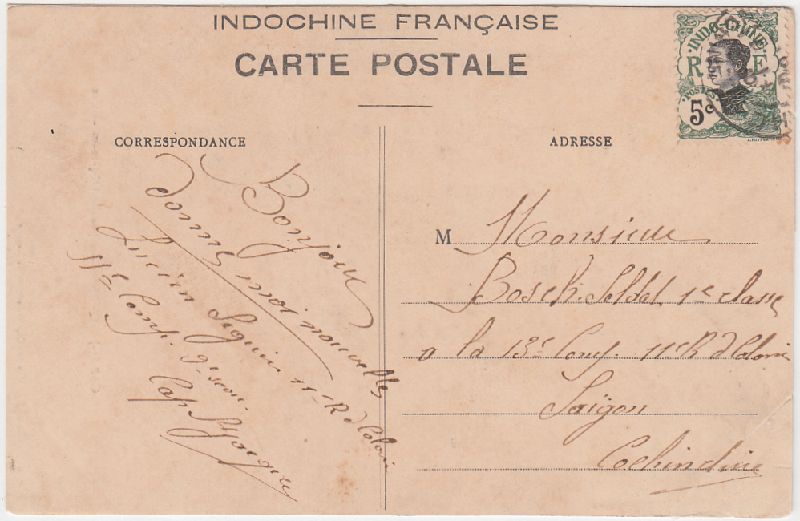 INDOCHINE FRANÇAISE
CARTE POSTALE
INDO-CHINE
R F
POSTES
5c
CORRESPONDANCE
ADRESSE
Bonjour
donne moi nouvelles
Lucien Seguin 11e R d Coloni
11e Comp. 9e
Cap St Jacques
M Monsieur
Bosch Soldat 1e classe
a la 13e Comp. 11e R d Coloni
Saïgon
Cochinchine